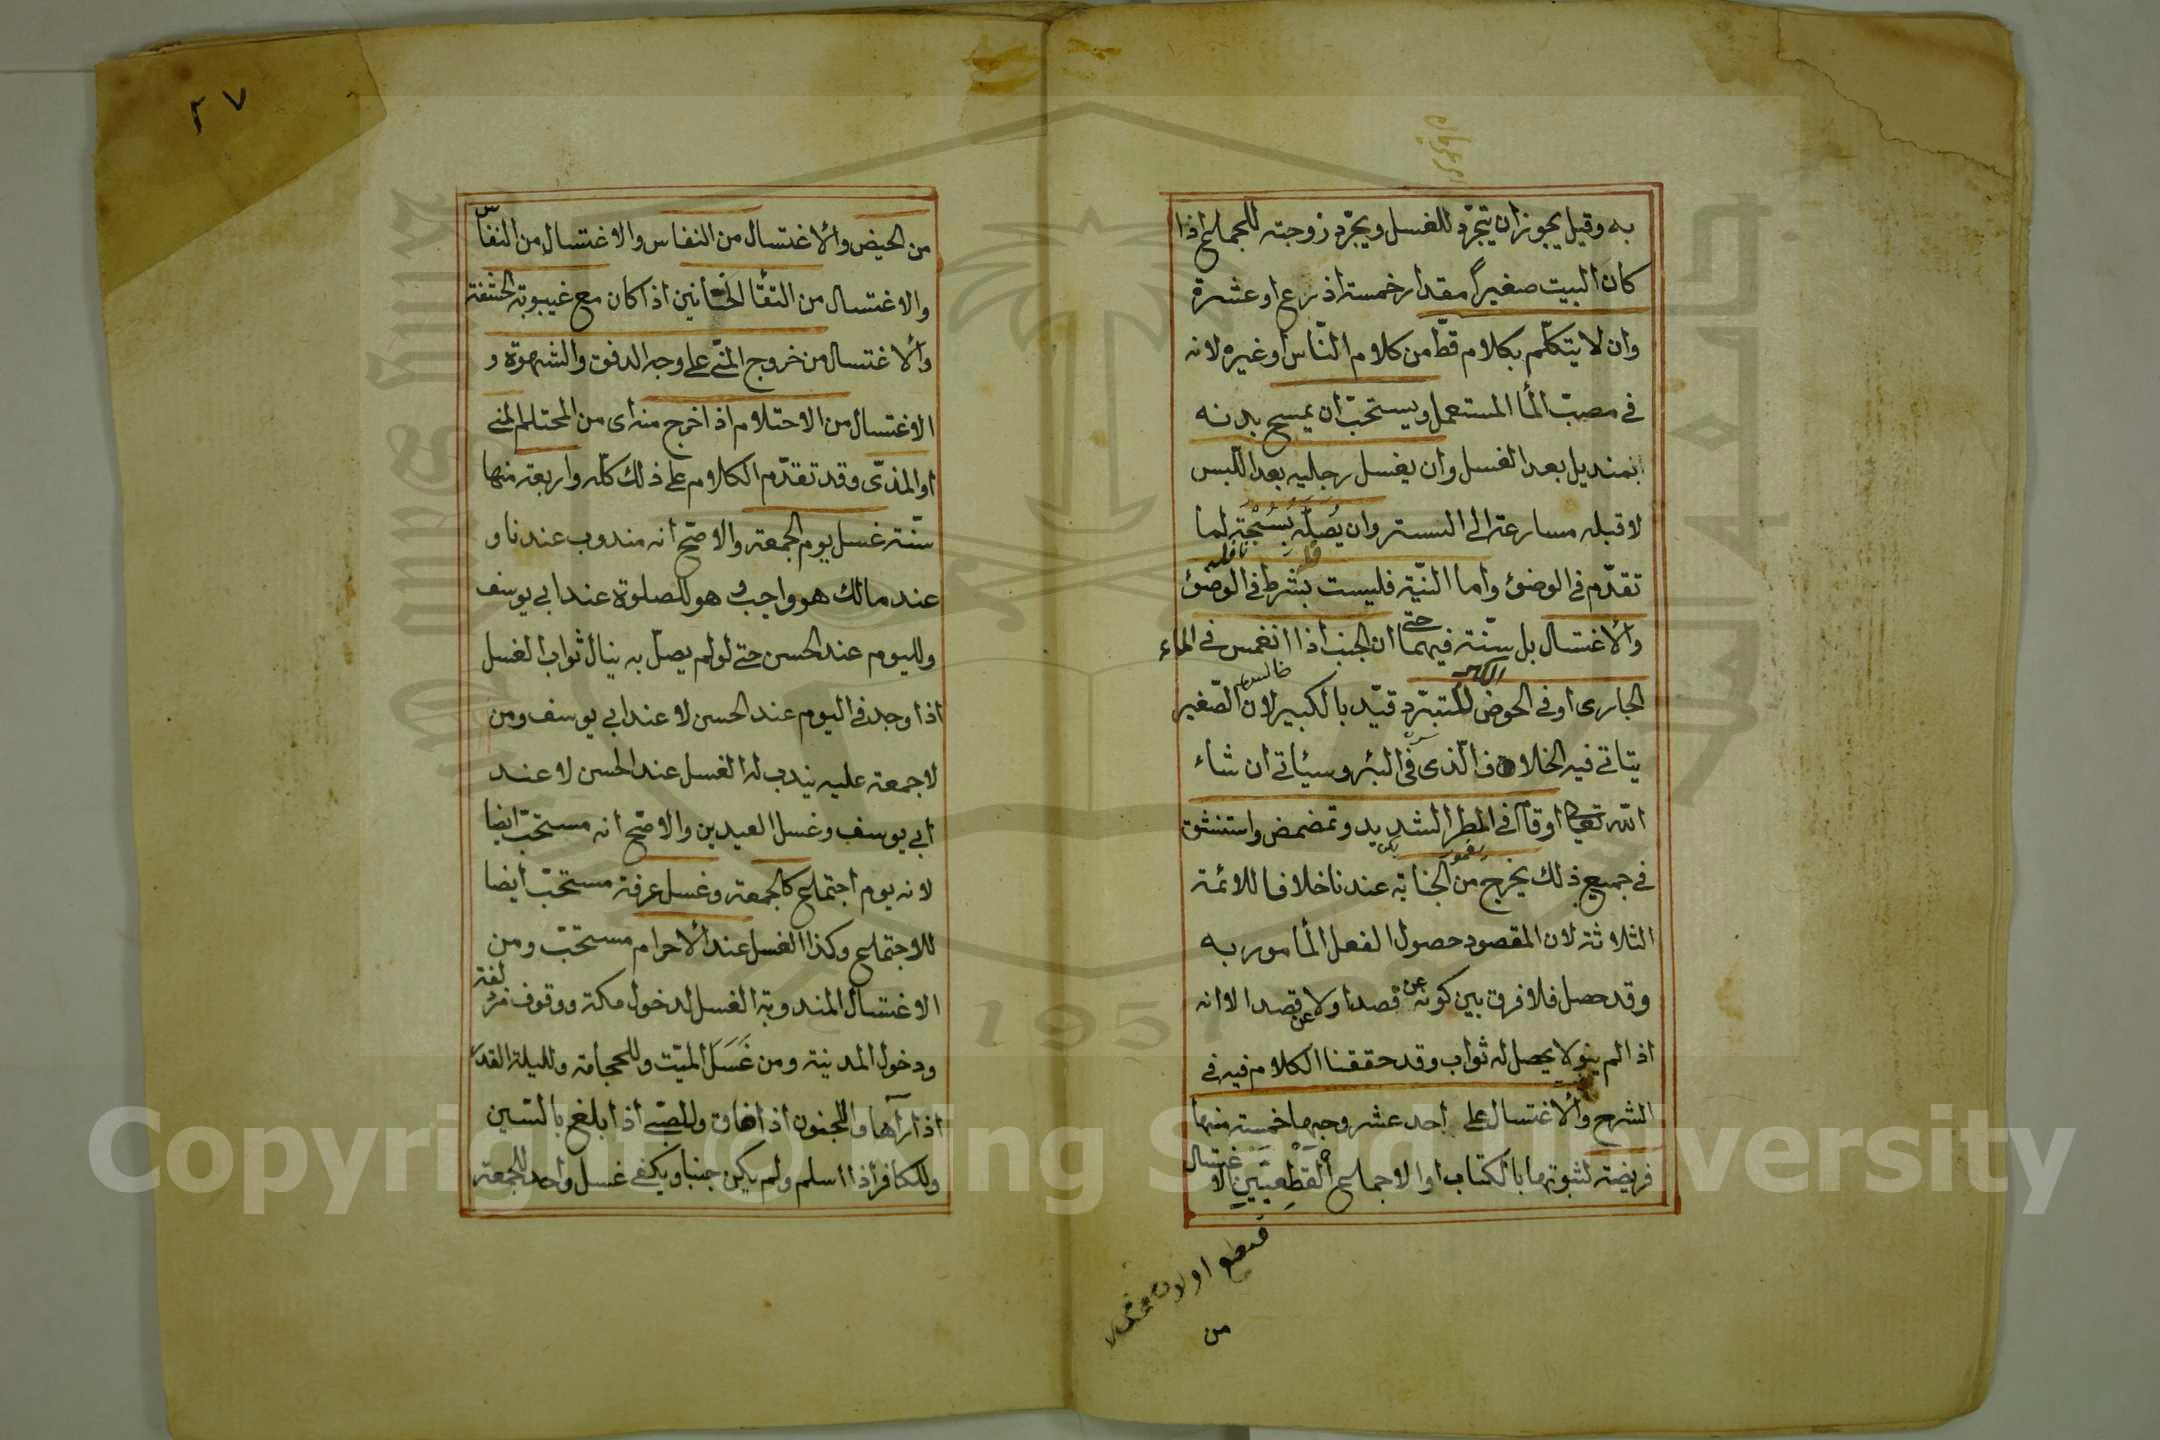 به وقيل يجوز ان يتجرّد للغسل ويجرّد زوجته للجماع اذا
كان البيت صغيراً مقدار خمسة اذرع او عشرة
وان لا يتكلّم بكلام قطّ من كلام النّاس او غيره لانه
فى مصبّ المأ المستعمل ويستحبّ ان يمسح بدنه
بمنديل بعد الغسل وان يغسل رجليه بعد اللّبس
لا قبله مسارعة الى الستر وان يُصلّه بِسُبْحَتِهِ لما
نافلة
تقدّم فى الوضوء واما النيّة فليست بشرط فى الوضوء
والاغتسال بل سنّة فيهما حتى ان الجنب اذا انغمس فى الماء
الجارى او فى الحوض الكبير للتبرّد قيّد بالكبير لان الصّغير
يتاتى فيه الخلاف الّذى فى البئر وسيئاتى ان شاء
الله تعالى او قام فى المطر الشديد وتمضمض واستنشق
فى جميع ذلك يخرج من الجنابة عندنا خلافا للائمة
الثلاثة لان المقصود حصول الفعل المأمور به
وقد حصل فلا فرق بين كونه عن قصد او لا عن قصد الا انه
اذا لم ينو لا يحصل له ثواب وقد حققنا الكلام فيه فى
الشرح والاغتسال على احد عشر وجها خمسة منها
فريضة لثبوتها بالكتاب او الاجماع القَطْعِيَّيْنِ الاغتسال
من
٢٧
من الحيض والاغتسال من النفاس والاغتسال من النفاس
والاغتسال من التقأ الختانين اذا كان مع غيبوبة الحشفة
والاغتسال من خروج المنّى على وجه الدفق والشهوة و
الاغتسال من الاحتلام اذا خرج منه اى من المحتلم المنى
او المذّى وقد تقدّم الكلام على ذلك كلّه واربعة منها
سنّة غسل يوم الجمعة والاصّح انه مندوب عندنا و
عند مالك هو واجب وهو للصلوة عند ابى يوسف
ولليوم عند الحسن حتى لو لم يصلّ به ينال ثواب الغسل
اذا وجد فى اليوم عند الحسن لا عند ابى يوسف ومن
لا جمعة عليه يندب له الغسل عند الحسن لا عند
ابى يوسف وغسل العيدين والاصّح انه مستحبّ ايضا
لانه يوم اجتماع كالجمعة وغسل عرفة مستحبّ ايضا
للاجتماع وكذا الغسل عند الاحرام مستحبّ ومن
الاغتسال المندوبة الغسل لدخول مكة ووقوف مزدلفة
ودخول المدينة ومن غَسَلَ الميّت وللحجامة ولليلة القدر
اذا رآها وللمجنون اذا افاق وللصّبى اذا بلغ بالسّن
وللكافر اذا اسلم ولم يكن جنبا ويكفى غسل واحد للجمعة
1957
Copyright © King Saud University